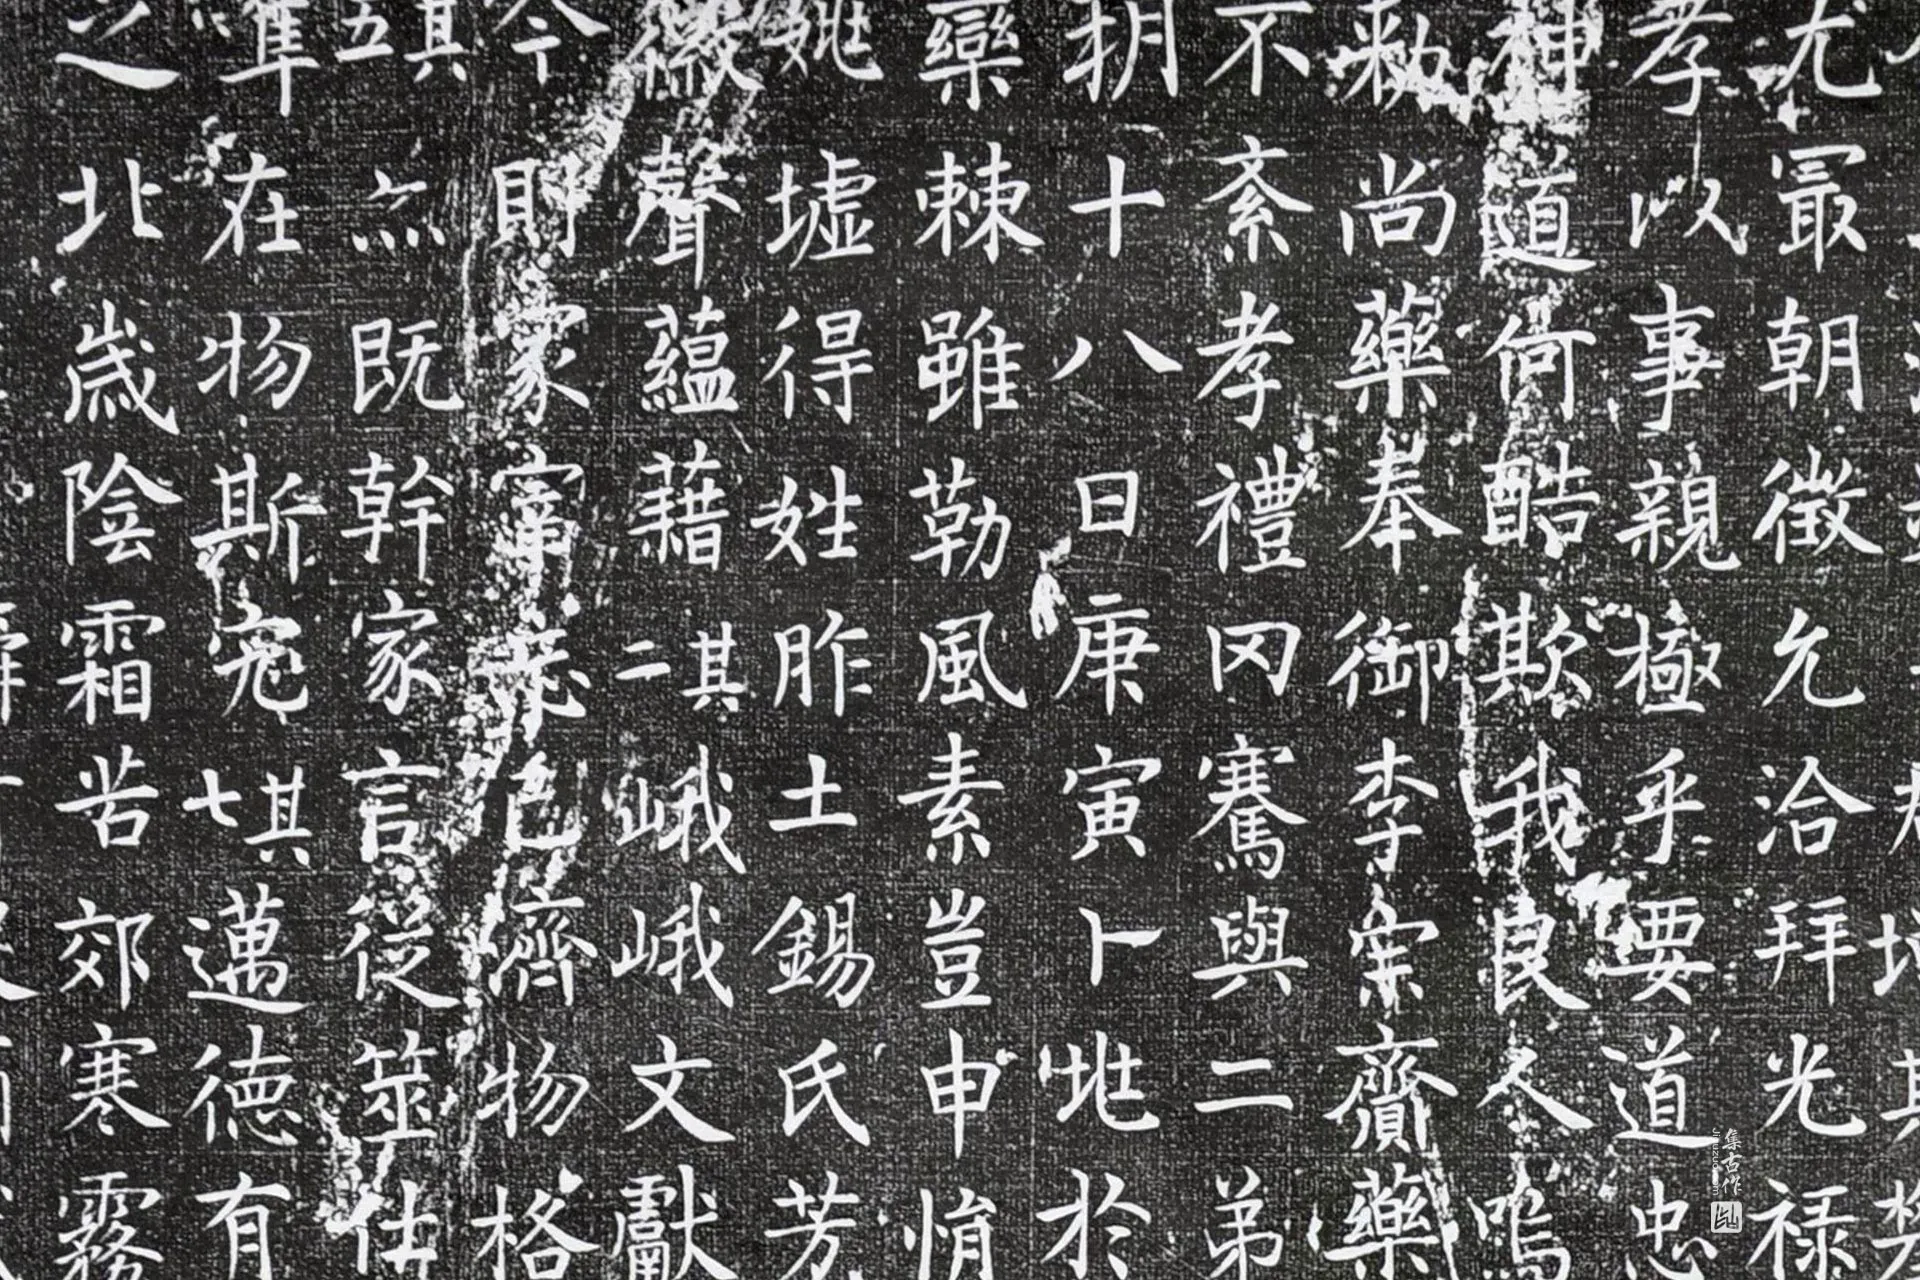 尤最朝徵允洽拜光禄
孝以事親極乎要道忠
神道何酷欺我良久嗚
勑尚藥奉御李宗齎藥
不紊孝禮罔騫與二弟
朔十八日庚寅卜兆於
欒棘雖勒風素豈申悄
姚墟得姓胙土錫氏芳
徽聲蘊藉其二峨峨文獻
今則冢宰色齊物格
其五亦既幹家言從筮仕
隼在物斯寃其七邁德有
之北歲陰霜苦郊寒霧
集古作